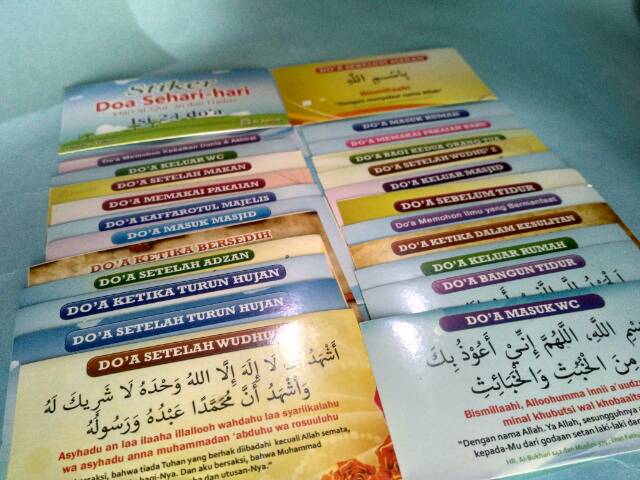 Stiker
Doa Sehari-hari
Dari Al-Qur'an dan Hadits
Isi 24 do'a
Do'a Memohon Kebaikan Dunia & Akhirat
DO'A KELUAR WC
DO'A SETELAH MAKAN
DO'A MEMAKAI PAKAIAN
DO'A KAFFAROTUL MAJELIS
DO'A MASUK MASJID
DO'A KETIKA BERSEDIH
DO'A SETELAH ADZAN
DO'A KETIKA TURUN HUJAN
DO'A SETELAH TURUN HUJAN
DO'A SETELAH WUDHU
أَشْهَدُ أَنْ لَا إِلَهَ إِلَّا اللهُ وَحْدَهُ لَا شَرِيكَ لَهُ
وَأَشْهَدُ أَنَّ مُحَمَّدًا عَبْدُهُ وَرَسُولُهُ
Asyhadu an laa ilaaha illallooh wahdahu laa syariikalahu
wa asyhadu anna muhammadan 'abduhu wa rosuuluhu
bersaksi, bahwa tiada Tuhan yang berhak diibadahi kecuali Allah semata,
bagi-Nya. Dan aku bersaksi, bahwa Muhammad
dan utusan-Nya."
DO'A SEBELUM MAKAN
بِاسْمِ اللهِ
Bismillaahi
"Dengan menyebut nama Allah"
DO'A MASUK RUMAH
DO'A MEMAKAI PAKAIAN BARU
DO'A BAGI KEDUA ORANG
DO'A SETELAH WUDHU 2
DO'A KELUAR MASJID
DO'A SEBELUM TIDUR
Do'a Memohon Ilmu yang Bermanfaat
DO'A KETIKA DALAM KESULITAN
DO'A KELUAR RUMAH
DO'A BANGUN TIDUR
DO'A MASUK WC
اللهِ، اَللَّهُمَّ إِنِّيْ أَعُوْذُ بِكَ
مِنَ الْخُبُثِ وَالْخَبَائِثِ
Bismillaahi, Alloohumma Innii a'uudzu
minal khubutsi wal khobaa
"Dengan nama Allah. Ya Allah, sesungguhnya
kepada-Mu dari godaan setan laki-laki dan
HR. Al-Bukhari